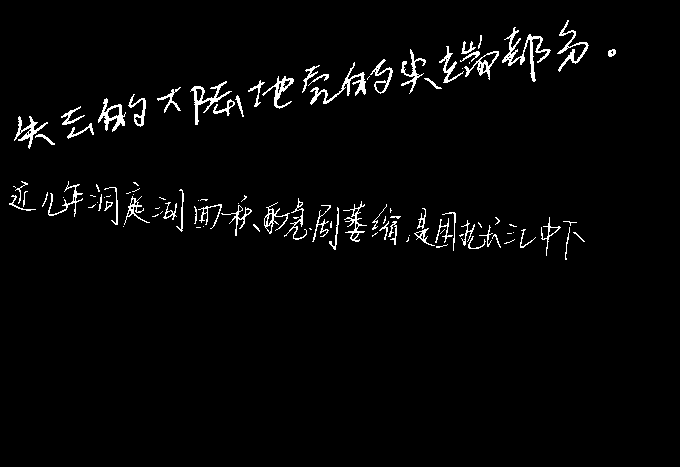 失去的大陆地壳的尖端部分。
近几年洞庭湖面积急剧萎缩,是因长江中下